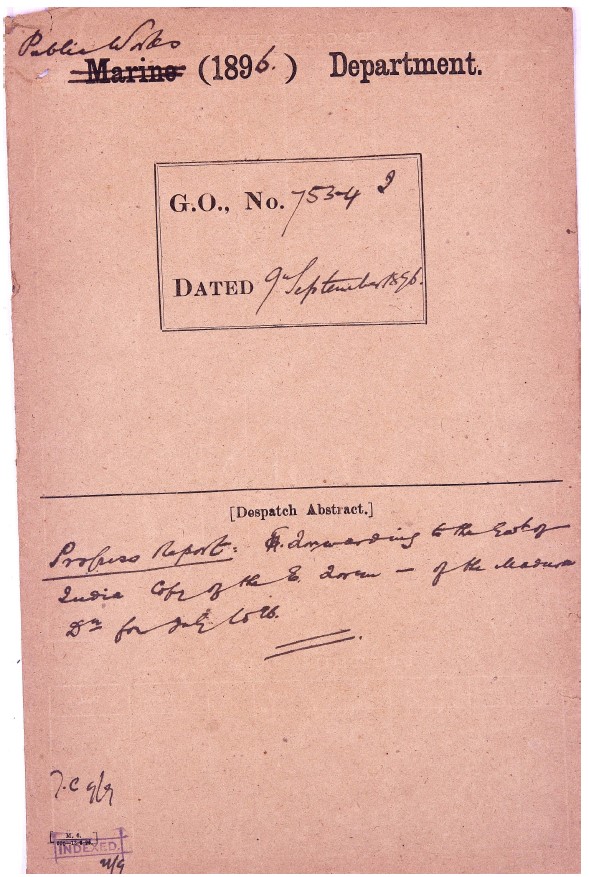 Public Works
Marine (1896.) Department.
G.O., No. 7534 I
DATED 9th September 1896.
[Despatch Abstract.]
Progress Report: forwarding to the Govt of
India Copy of the E. Form — of the Madura
Dn for July 1896.
9/9
INDEXED.